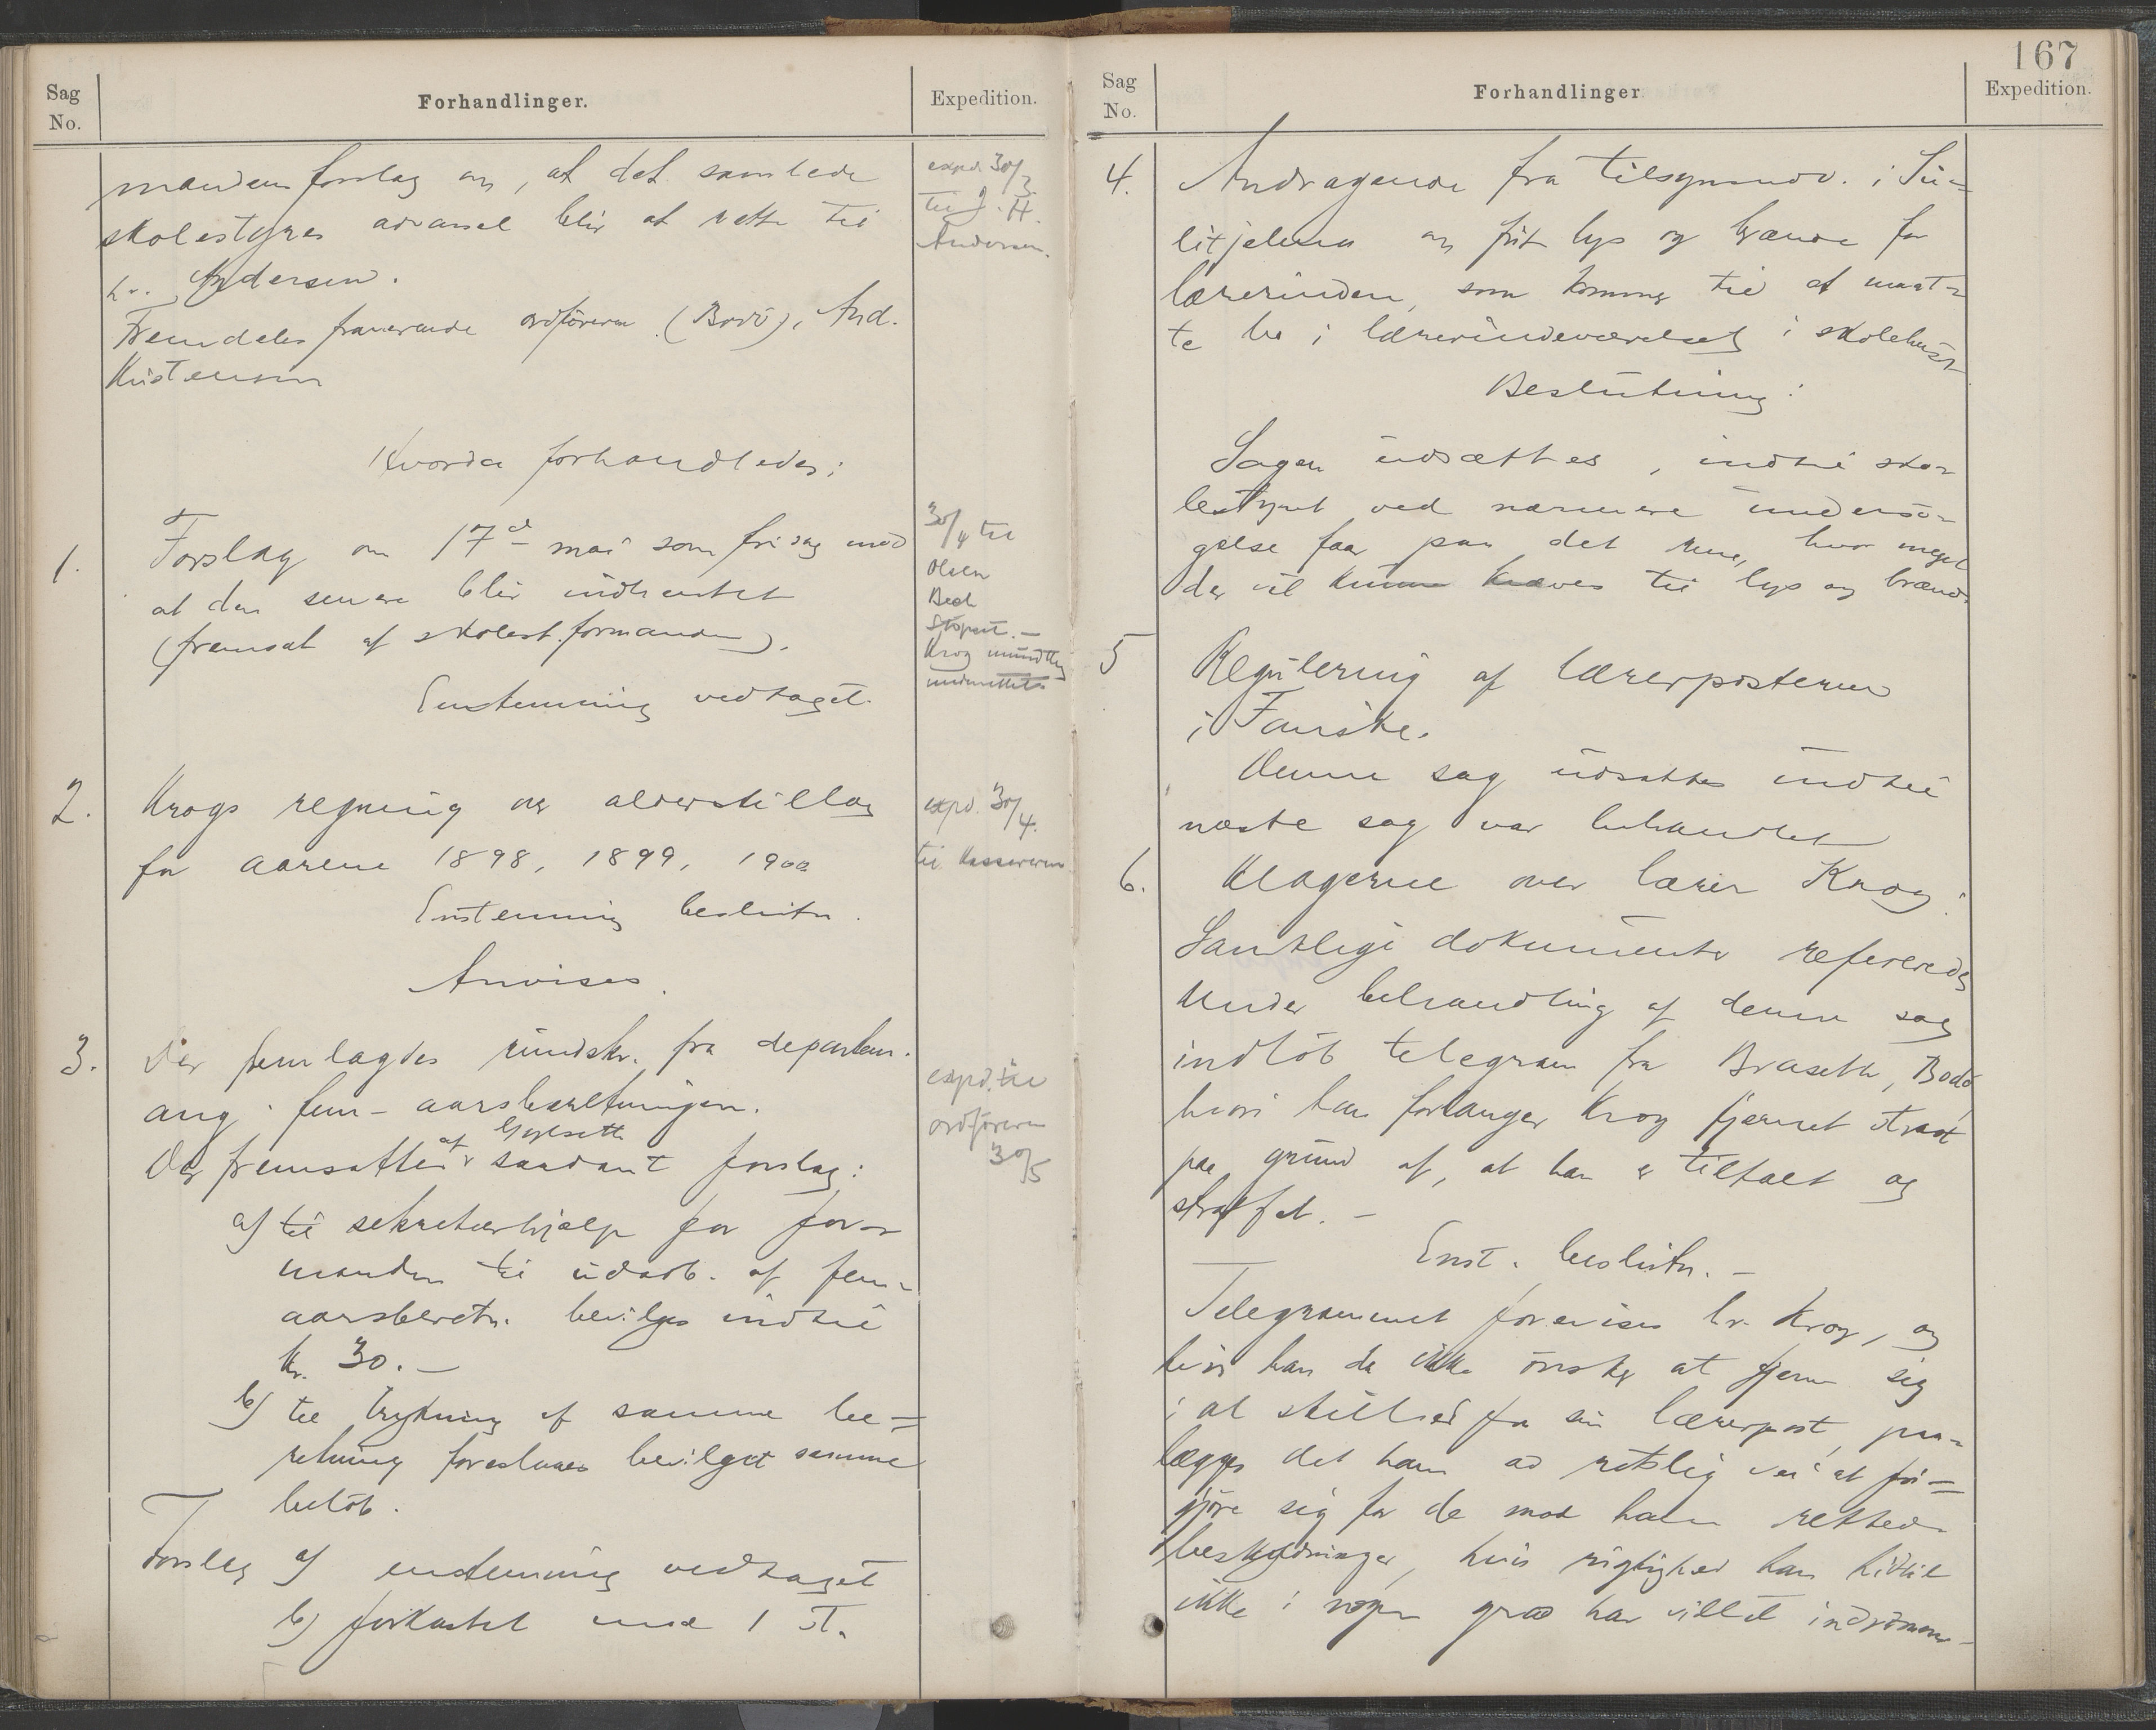 Sag
No.
Forhandlinger.
Expedition.
mandens forslag om, at det samlede
skolestyres advarsel blir at rette til
hr. Andersen.
Fremdeles fraværende ordföreren (Bodö), And.
Kristensen
Hvorda forhandledes:
1. Forslag om 17de mai som fridag mod
at den senere blir indhentet
(fremsat af skolest.formanden).
Enstemmig vedtaget.
2. Krogs regning over alderstillæg
for aarene 1898, 1899, 1900
Enstemmig beslutn.
Anvises.
3. Der fremlagdes rundskr. fra departem.
ang. fem-aarsberetningen.
af
Der fremsattes saadant forslag:
a) til sekretærhjælp for for-
manden til udarb. af fem-
aarsberetn. bevilges indtil
kr. 30.-
b) til trykning af samme be-
retning foreslaaes bevilget samme
belöb.
Forslag a) enstemmig vedtaget
b) forkastet mod 1 st.
expd. 30/3
til J. H.
Andersen.
30/4 til
Olsen
Bech
Krog mundtlig
underrettet
expd. 30/4.
til kassereren
expd. til
ordföreren
30/5
167
Sag
No.
Forhandlinger
Expedition.
4. Andragende fra tilsynsudv. i Su-
litjelma om frit lys og brænde for
lærerinden, som kommer til at maat-
te bo i lærerindeværelset i skolehuset
Beslutning:
Sagen udsættes, indtil sko-
lestyret ved nærmere undersö-
gelse faar paa det rene, hvor meget
der vil kunne kræves til lys og brænde.
5 Regulering af lærerposterne
i Fauske.
Denne sag udsattes indtil
næste sag var behandlet
6. Klagerne over lærer Krog:
Samtlige dokumenter refereredes
Under behandling af denne sag
indlöb telegram fra Braseth, Bodö,
hvori han forlanger Krog fjernet strax
paa grund af, at han er tiltalt og
straffet. -
Enst. beslutn. -
Telegrammet forevises hr. Krog, og
hvis han da ikke önsker at fjerne sig
i al stillhed fra sin lærerpost, paa-
lægges det ham ad retslig vei at fri-
gjöre sig for de mod ham rettede
beskyldninger, hvis rigtighed han hidtil
ikke i nogen grad har villet indrömme -